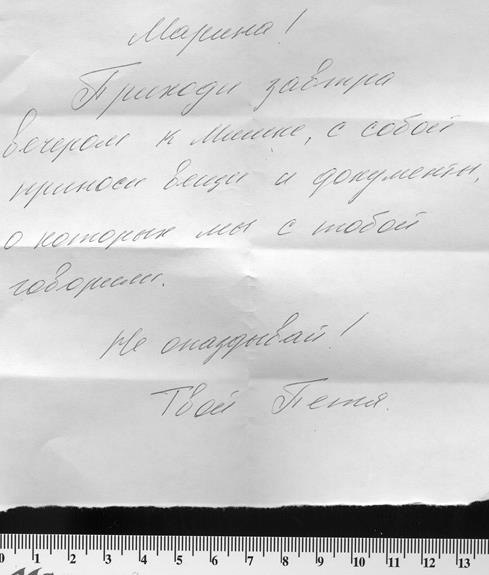 Марина!
Приходи завтра
вечером к Мишке, с собой
приноси вещи и документы,
о которых мы с тобой
говорили.
Не опаздывай!
Твой Петя.
0 1 2 3 4 5 6 7 8 9 10 11 12 13